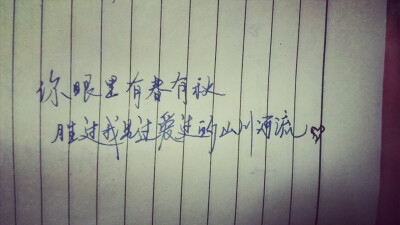 你眼里有春有秋
胜过我见过爱过的山川河流